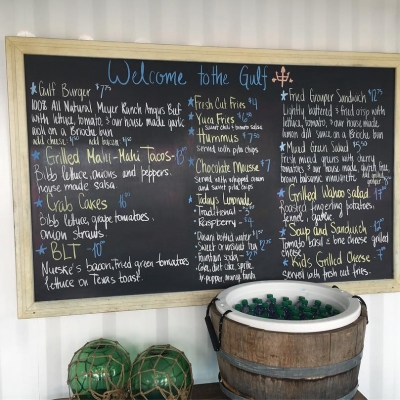 Welcome to the Gulf
Gulf Burger $7.75
100% All Natural Meyer Ranch Angus Beef
with lettuce, tomato, & our house made garlic
aioli on a Brioche bun
add cheese add bacon
Grilled Mahi-Mahi Tacos
Bibb lettuce, onions and peppers,
house made salsa
Crab Cakes
Bibb lettuce, grape tomatoes,
onion straws
BLT -10
Nueske's bacon, Fried green tomatoes
lettuce on Texas toast.
Fresh Cut Fries $4
Yuca Fries
Hummus
Served with pita chips
Chocolate Mousse $7
Served with whipped cream
Today's Lemonade
Traditional
Raspberry
Dasani bottled water
Fountain soda
Coke, diet coke, sprite,
Fried Grouper Sandwich
Lightly battered & fried crisp with
lettuce, tomato, & our house made
lemon dill sauce on a Brioche bun
Mixed Green Salad
Fresh mixed greens with cherry
tomatoes & our house made
brown balsamic vinaigrette
Grilled Wahoo Salad
Roasted fingerling potatoes,
fennel, garlic
Soup and Sandwich
Tomato basil & brie cheese grilled
cheese
Kids Grilled Cheese -7
served with fresh cut fries.